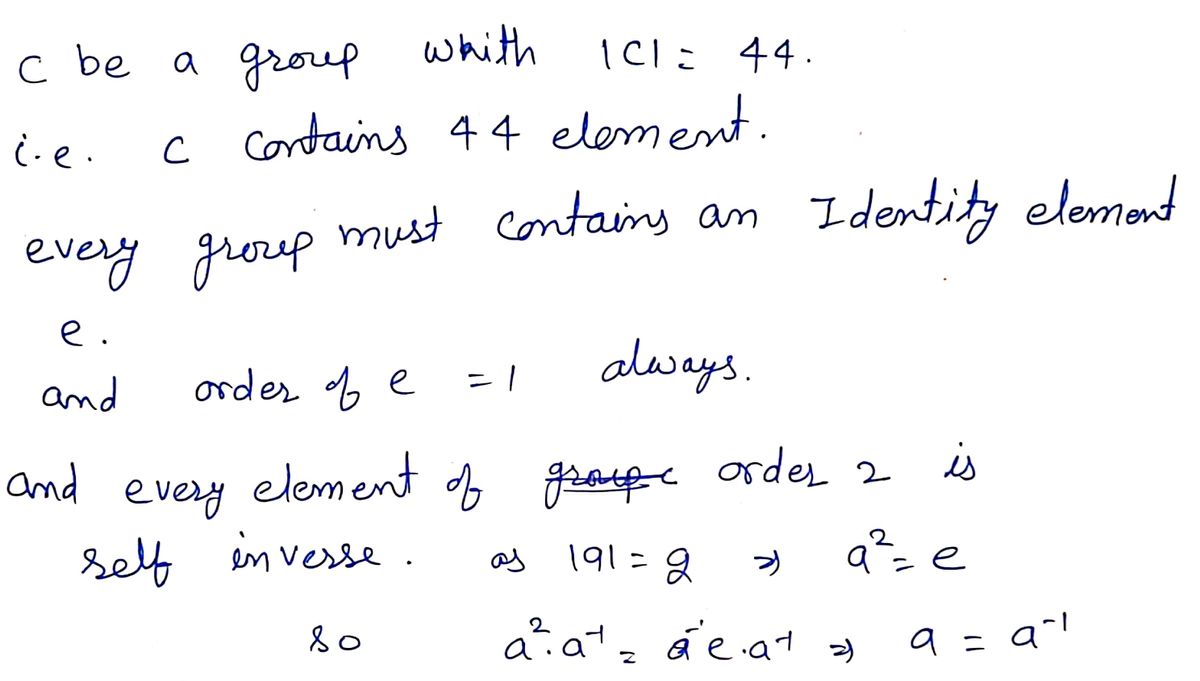 C be a group whith |C| = 44.
i.e. C contains 44 element.
every group must contains an Identity element
e.
and order of e = 1 always.
and every element of order 2 is
self inverse. as |a| = 2 ⇒ a² = e
so a².a⁻¹ = e.a⁻¹ ⇒ a = a⁻¹